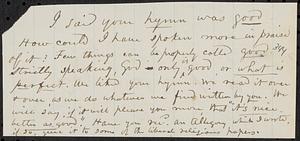 I said your hymn was good
How could I have spoken more in praise
of it? Few things can be properly calld Good.
Strictly speaking, God - only, is Good or what is
perfect. We like your hymn. We read it over
& over as we do whatever we find written by you. We
will say, if it will please you more that "it's nice
better as good." Have you an Allegory which I wrote,
if so, give it to some of the liberal religious papers.